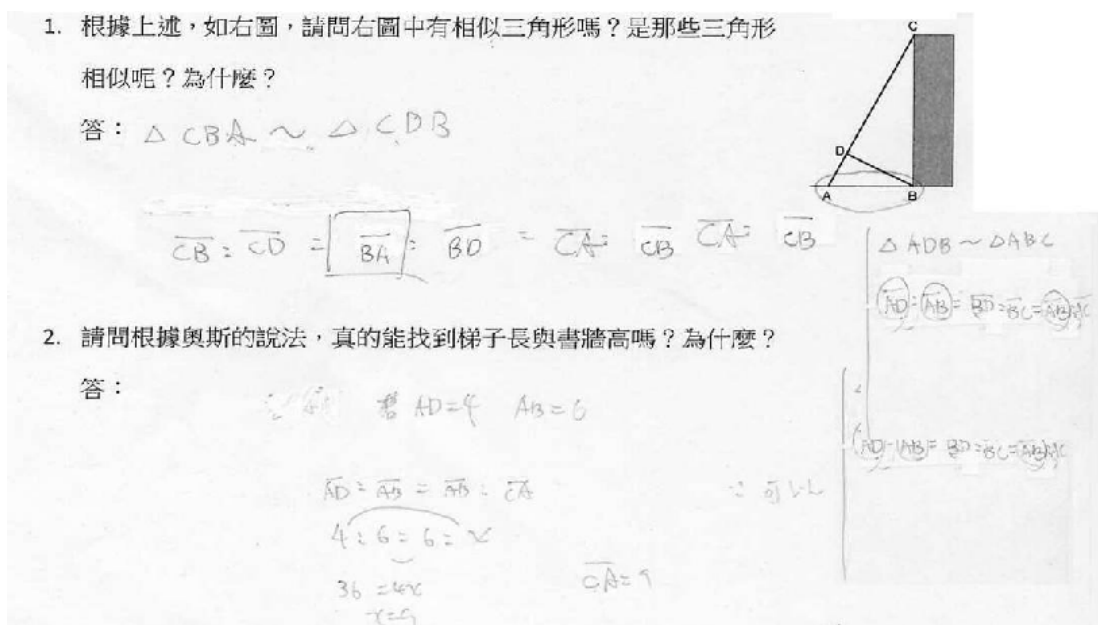 1. 根據上述，如右圖，請問右圖中有相似三角形嗎？是那些三角形
相似呢？為什麼？
答：△ CBA ~ △ CDB
CB : CD = BA : BD = CA : CB CA : CB
C
D
A B
△ ADB ~ △ABC
AD : AB = BD : BC = AB : AC
2. 請問根據奧斯的說法，真的能找到梯子長與書牆高嗎？為什麼？
答：
若 AD=4 AB=6
AD : AB = AB : CA
∴ 可以
4 : 6 = 6 : x
36 = 4x
x=9
CA=9
AD : AB = BD : BC = AB : AC